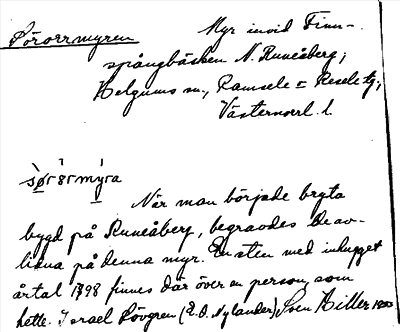 Sörormyren
Myr invid Finn-
spångbäcken N. Runeåberg;
Helgums sn, Ramsele o. Resele tg;
Västernorrl. l.
När man började bryta
bygd på Runeåberg, begravdes de av-
lidna på denna myr. En sten med inhugget
årtal 1798 finnes där över en person som
hette. Israel Sövgren (E.O. Nylander) Sven